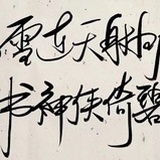 雪连天射白
书神侠倚碧